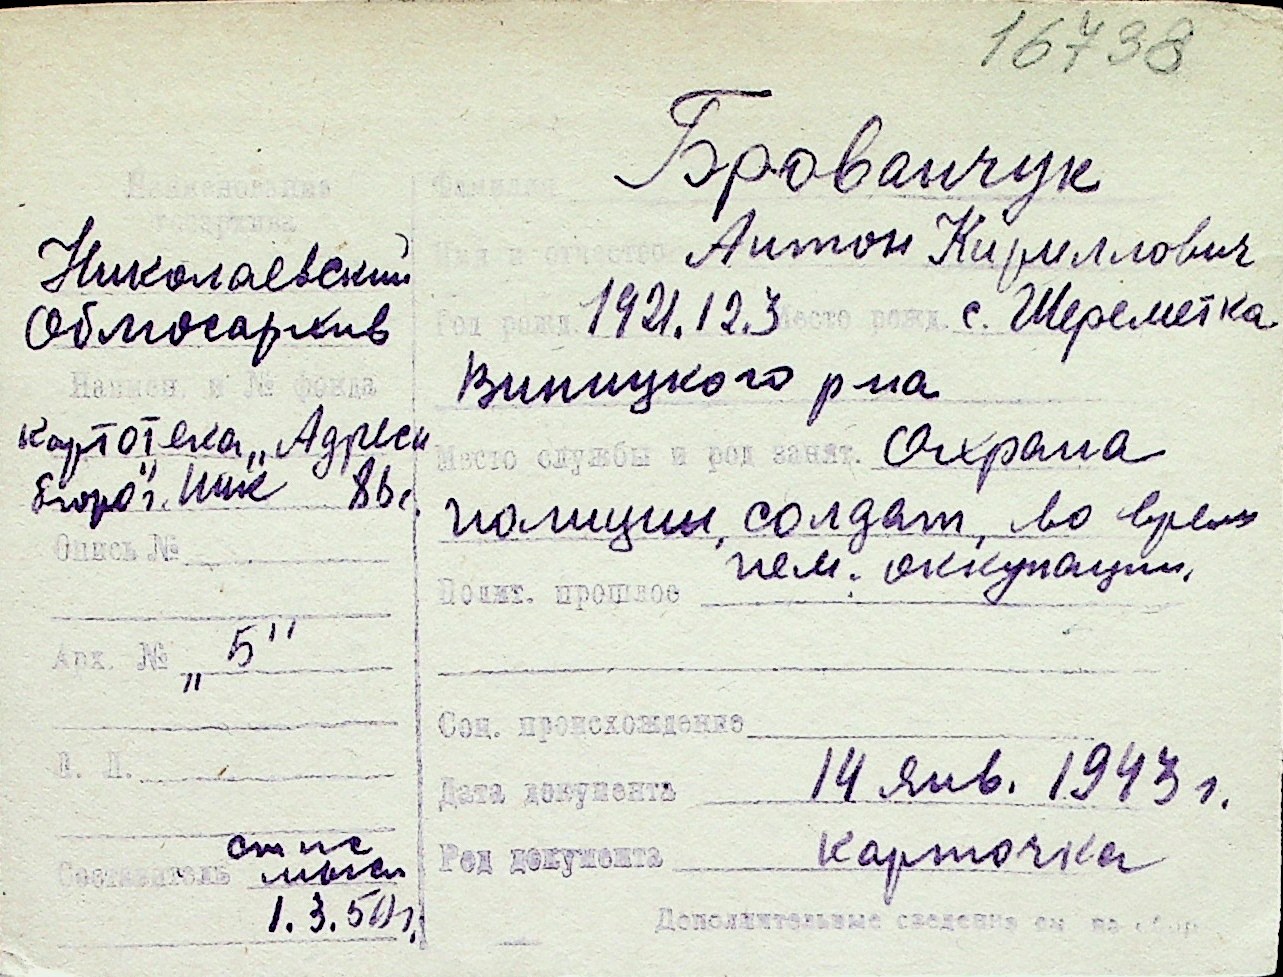 16738
Наименование
госархива
Николаевский
Облгосархив
Наимен. и № фонда
картотека „Адресн
бюро" г. Ник 8 в с.
Опись №
Арх. № „5"
Л. Л.
Составитель
1.3.50 г.
Фамилия Брованчук
Имя и отчество Антон Кириллович
Год рожд. 1921.12.3 Место рожд. с. Шереметка
Виницкого р на
Место службы и род занят. Охрана
полиции, солдат, во врем
нем. оккупации.
Полит. прошлое
Соц. происхождение
Дата документа 14 янв. 1943 г.
Род документа карточка
Дополнительные сведения см. на обор